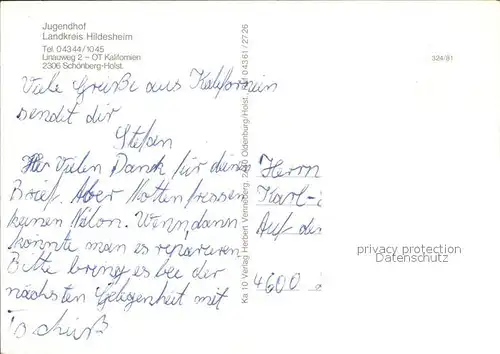 Jugendhof
Landkreis Hildesheim
Tel. 0 43 44 / 10 45
Linauweg 2 – OT Kalifornien
2306 Schönberg-Holst.
324/81
Viele Grüße aus Kalifornien
sendet dir
Stefan
Vielen Dank für deinen
Brief. Aber Motten fressen
keinen Nilon. Wenn dann
könnte man es reparieren
Bitte bring es bei der
nächsten Gelegenheit mit
Tschüß
Ka 10 Verlag Herbert Venneberg, 2440 Oldenburg/Holst. 0 43 61 / 27 26
Herrn
Karl-
Auf der
4600
privacy protection
Datenschutz